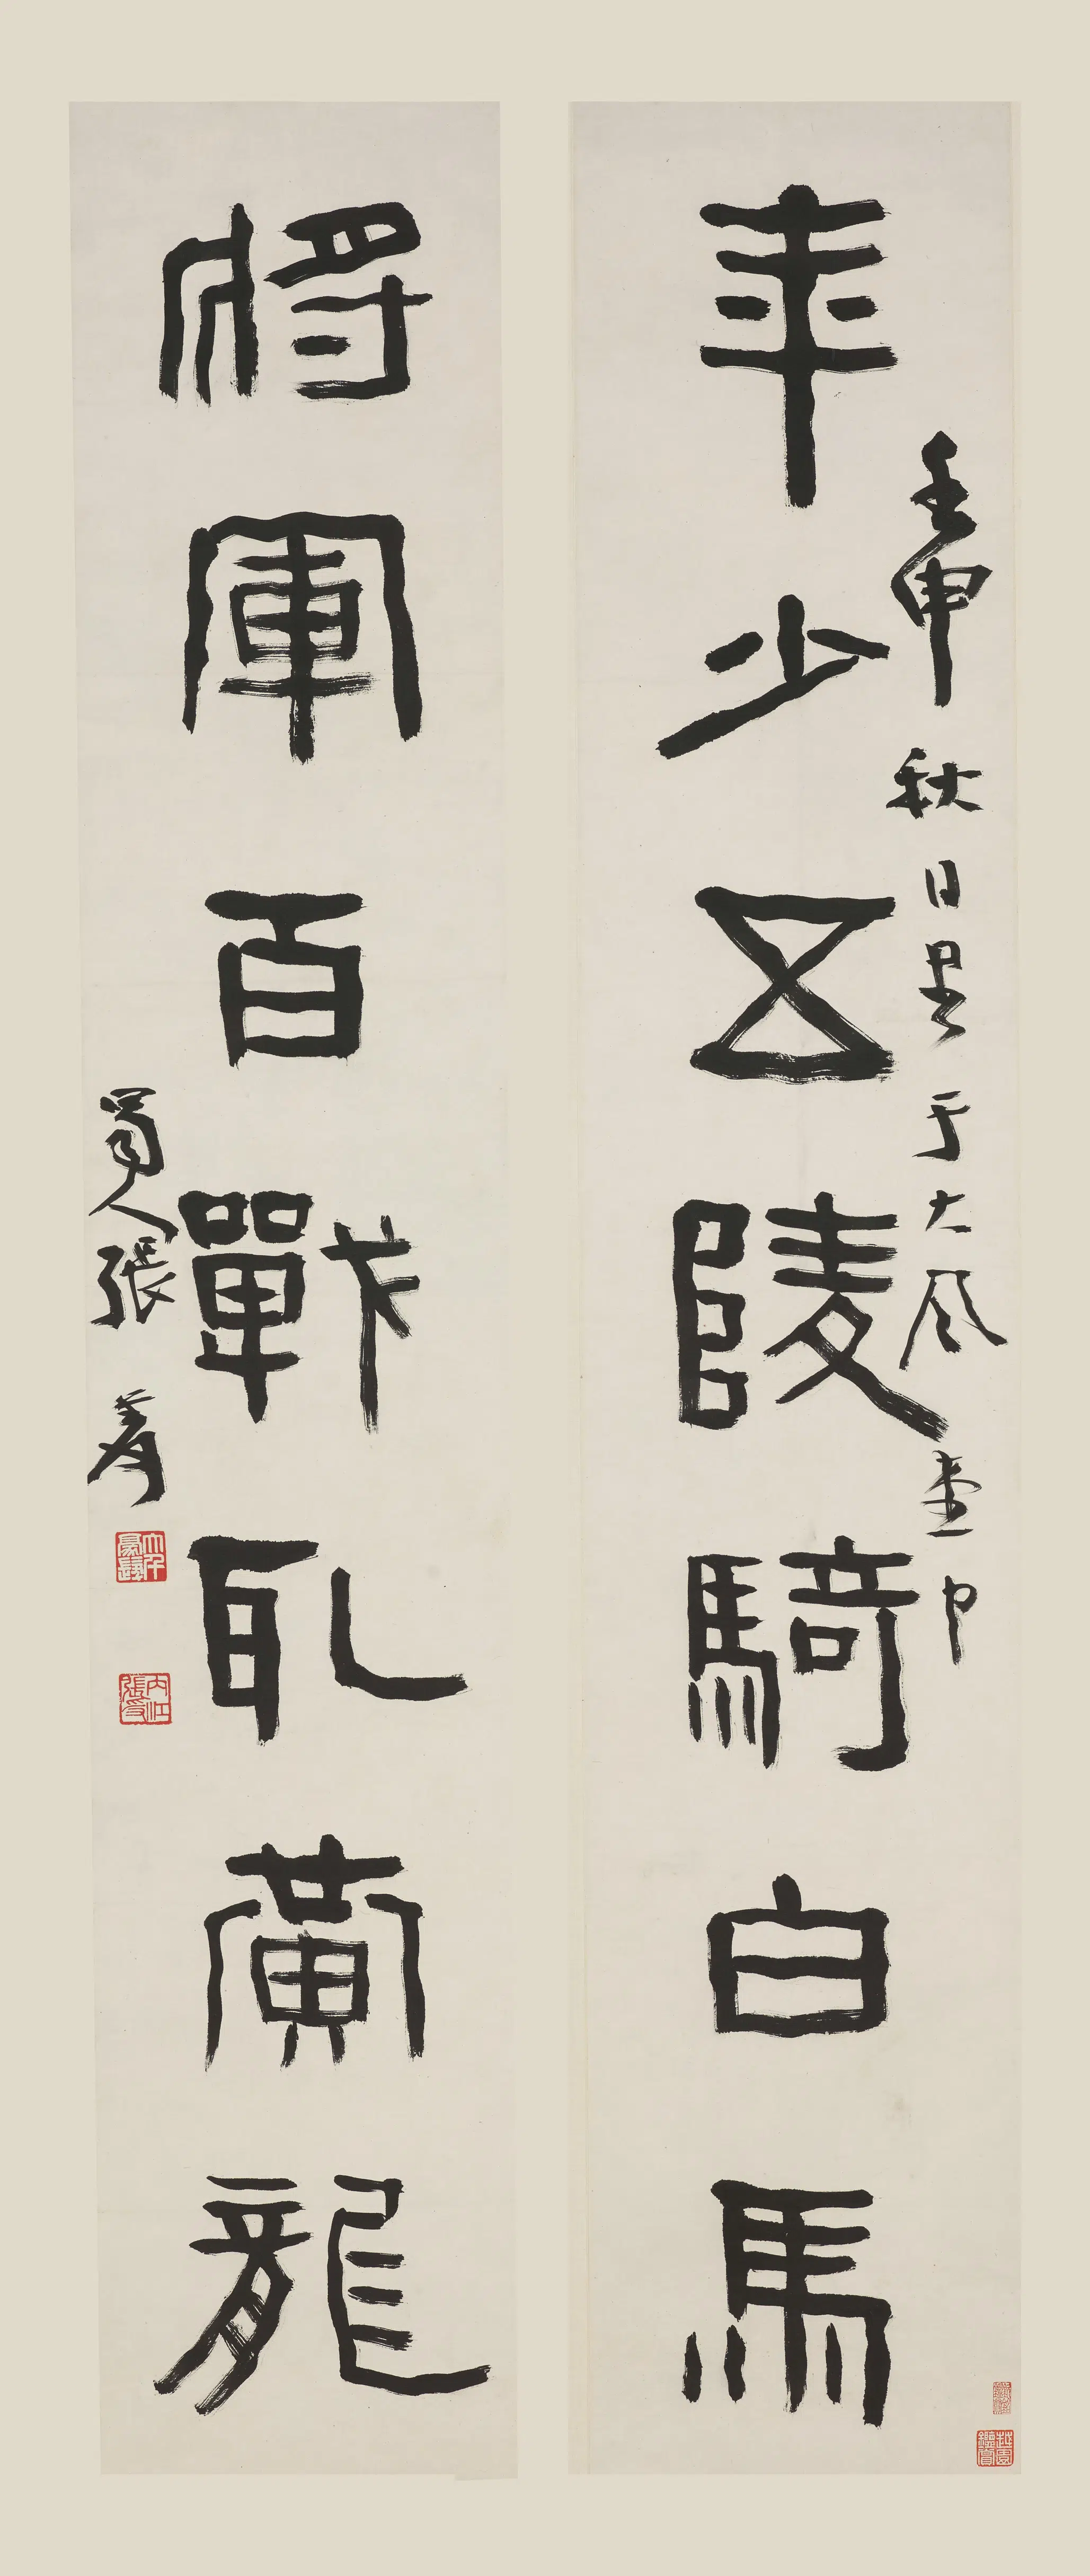 年少五陵騎白馬
壬申秋日書于大風堂中
將軍百戰耴黃龍
蜀人張爰
大千豪髮
內江張爰